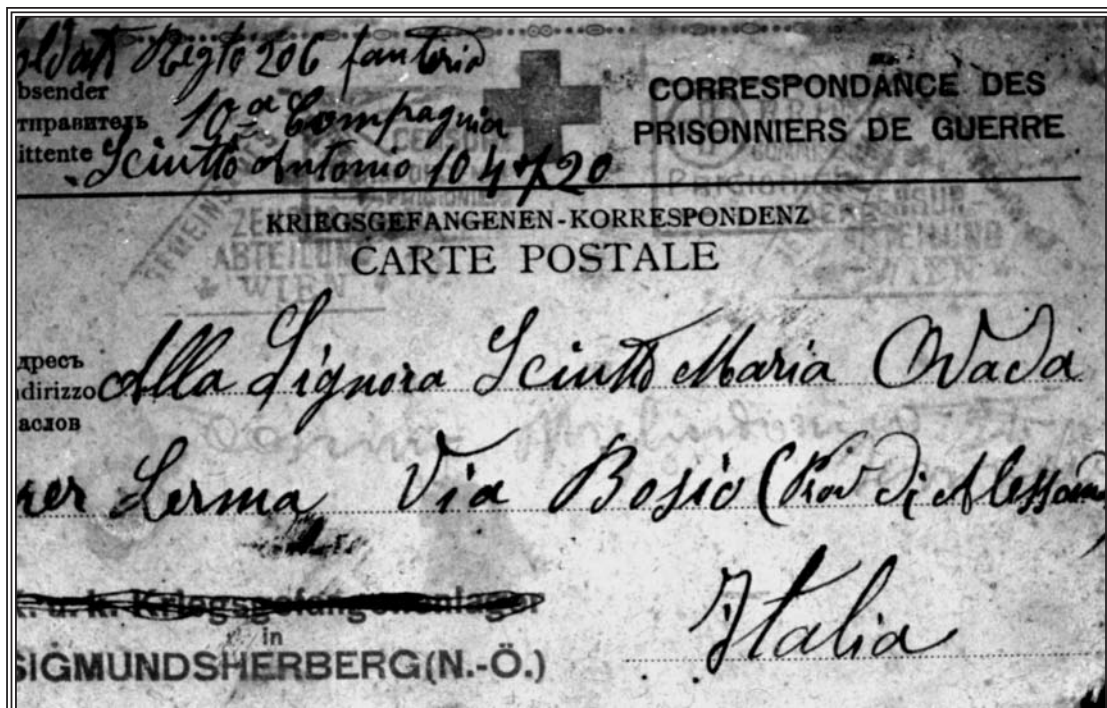 Regto 206 fanteria
bsender
тправитель 10a Compagnia
ittente Sciutto Antonio 104720
CORRESPONDANCE DES
PRISONNIERS DE GUERRE
KRIEGSGEFANGENEN-KORRESPONDENZ
CARTE POSTALE
ZENSUR-
ABTEILUNG
WIEN
дресъ
ndirizzo Alla Signora Sciutto Maria Ovada
аслов
per Lerma Via Bosio (Prov di Alessand
k. u. k. Kriegsgefangenenlager
in
SIGMUNDSHERBERG (N.-Ö.)
Italia